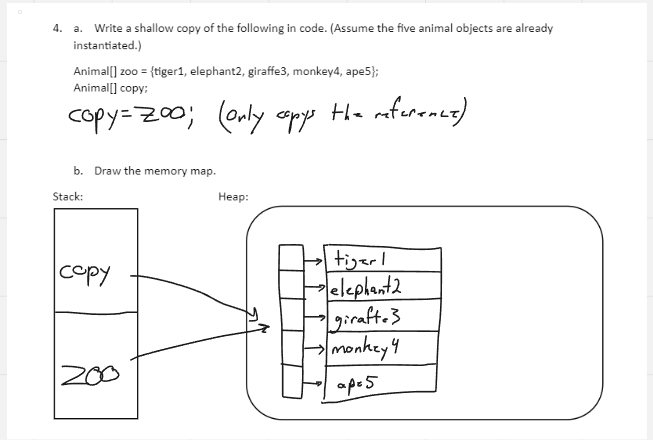 4. a. Write a shallow copy of the following in code. (Assume the five animal objects are already
instantiated.)
Animal[] zoo = {tiger1, elephant2, giraffe3, monkey4, ape5};
Animal[] copy;
copy=zoo; (only copys the reference)
b. Draw the memory map.
Stack: Heap:
copy
zoo
tiger1
elephant2
giraffe3
monkey4
ape5